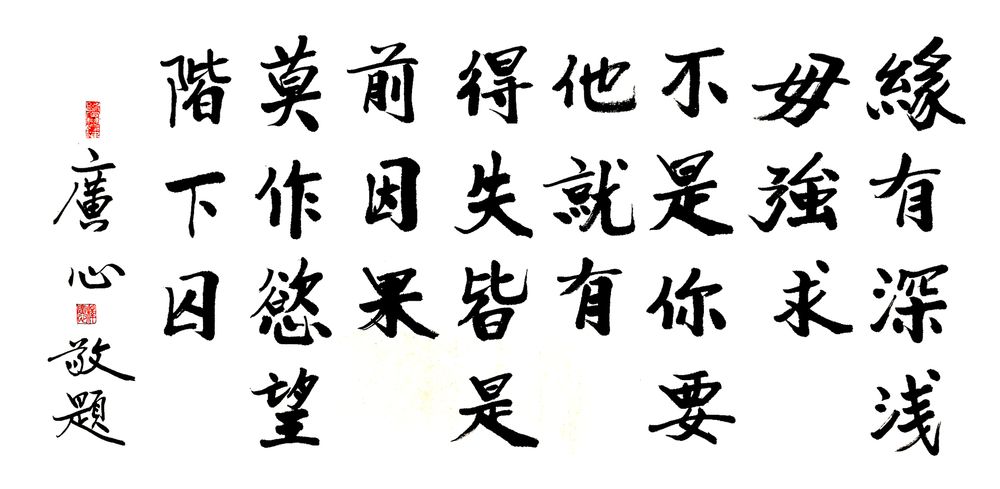 緣有深浅
毋強求
不是你要
他就有
得失皆是
前因果
莫作慾望
階下囚
廣心敬題